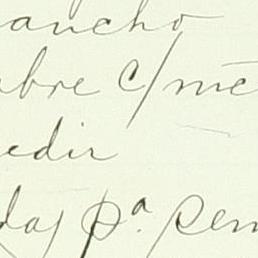 ancho
bre c/me
edir
das pª sem